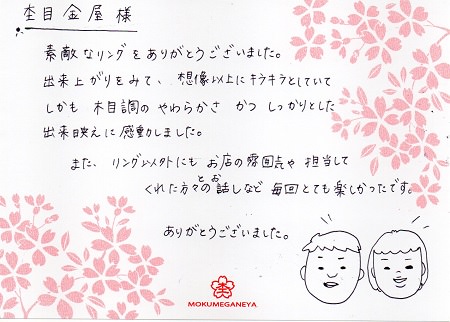 杢目金屋様
素敵なリングをありがとうございました。
出来上がりをみて、想像以上にキラキラとしていて
しかも 木目調の やわらかさ かつ しっかりとした
出来映えに感動しました。
また、リング以外にも お店の雰囲気や 担当して
くれた方々とのお話しなど 毎回とても楽しかったです。
ありがとうございました。
杢
MOKUMEGANEYA